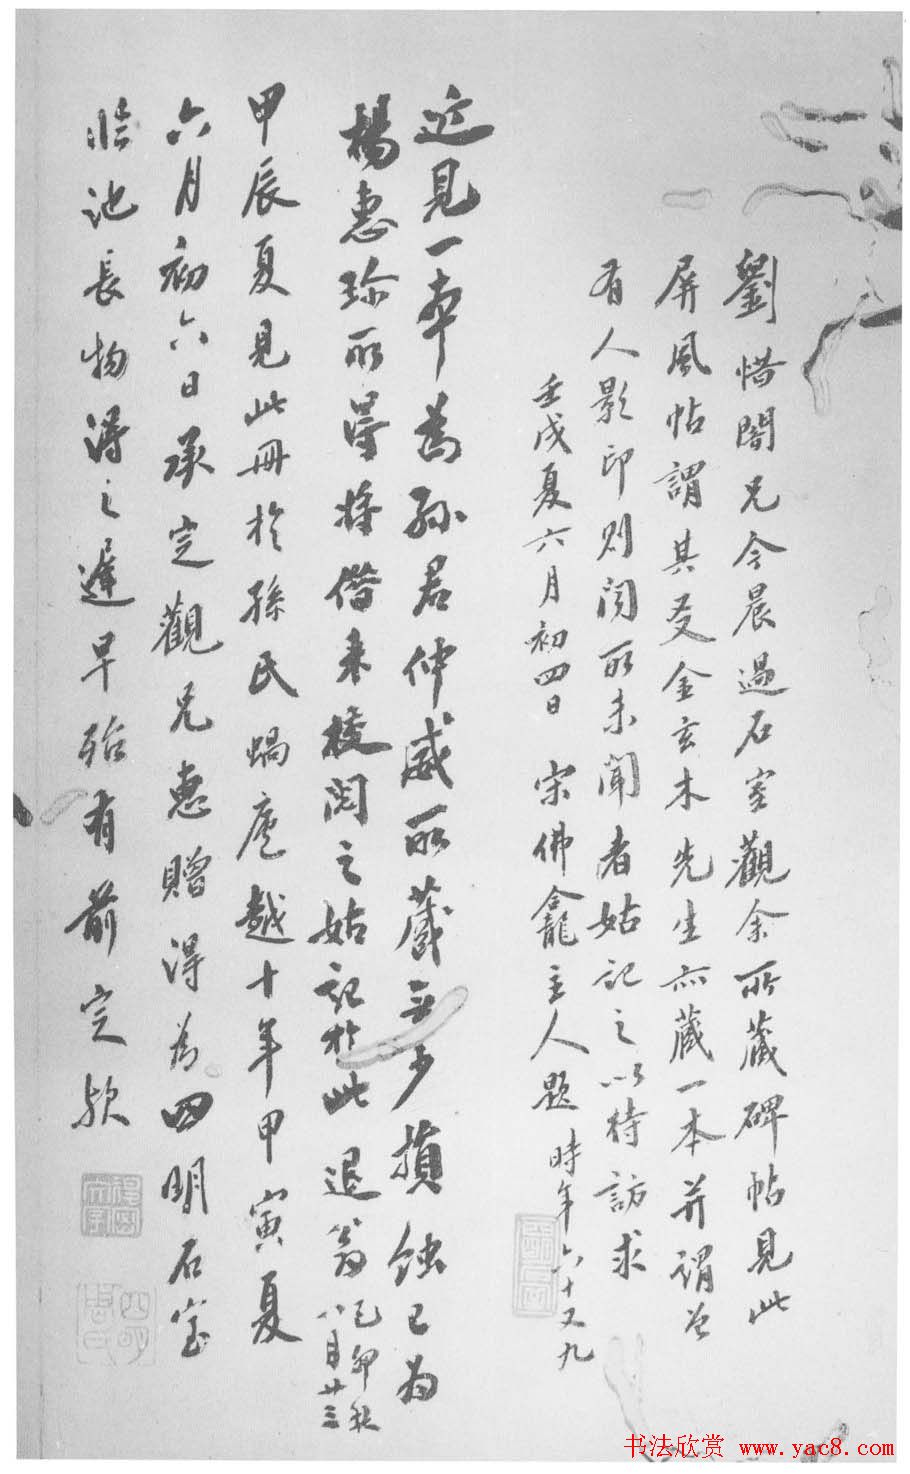 劉惜闇兄今晨過石室觀余所藏碑帖見此
屏風帖謂其友金玄木先生亦藏一本并謂曾
有人影印則聞所未聞者姑記之以待訪求
壬戌夏六月初四日 宋佛龕主人題 時年六十又九
近見一本為孫君仲威所藏無少損蝕已為
楊惠珍所得將借來校閱之姑記於此 退翁 乙卯秋
八月廿三
甲辰夏見此冊於孫氏蝸廬越十年甲寅夏
六月初六日承定觀兄惠贈得為四明石室
臨池長物得之遲早殆有前定歟
书法欣赏 www.yac8.com